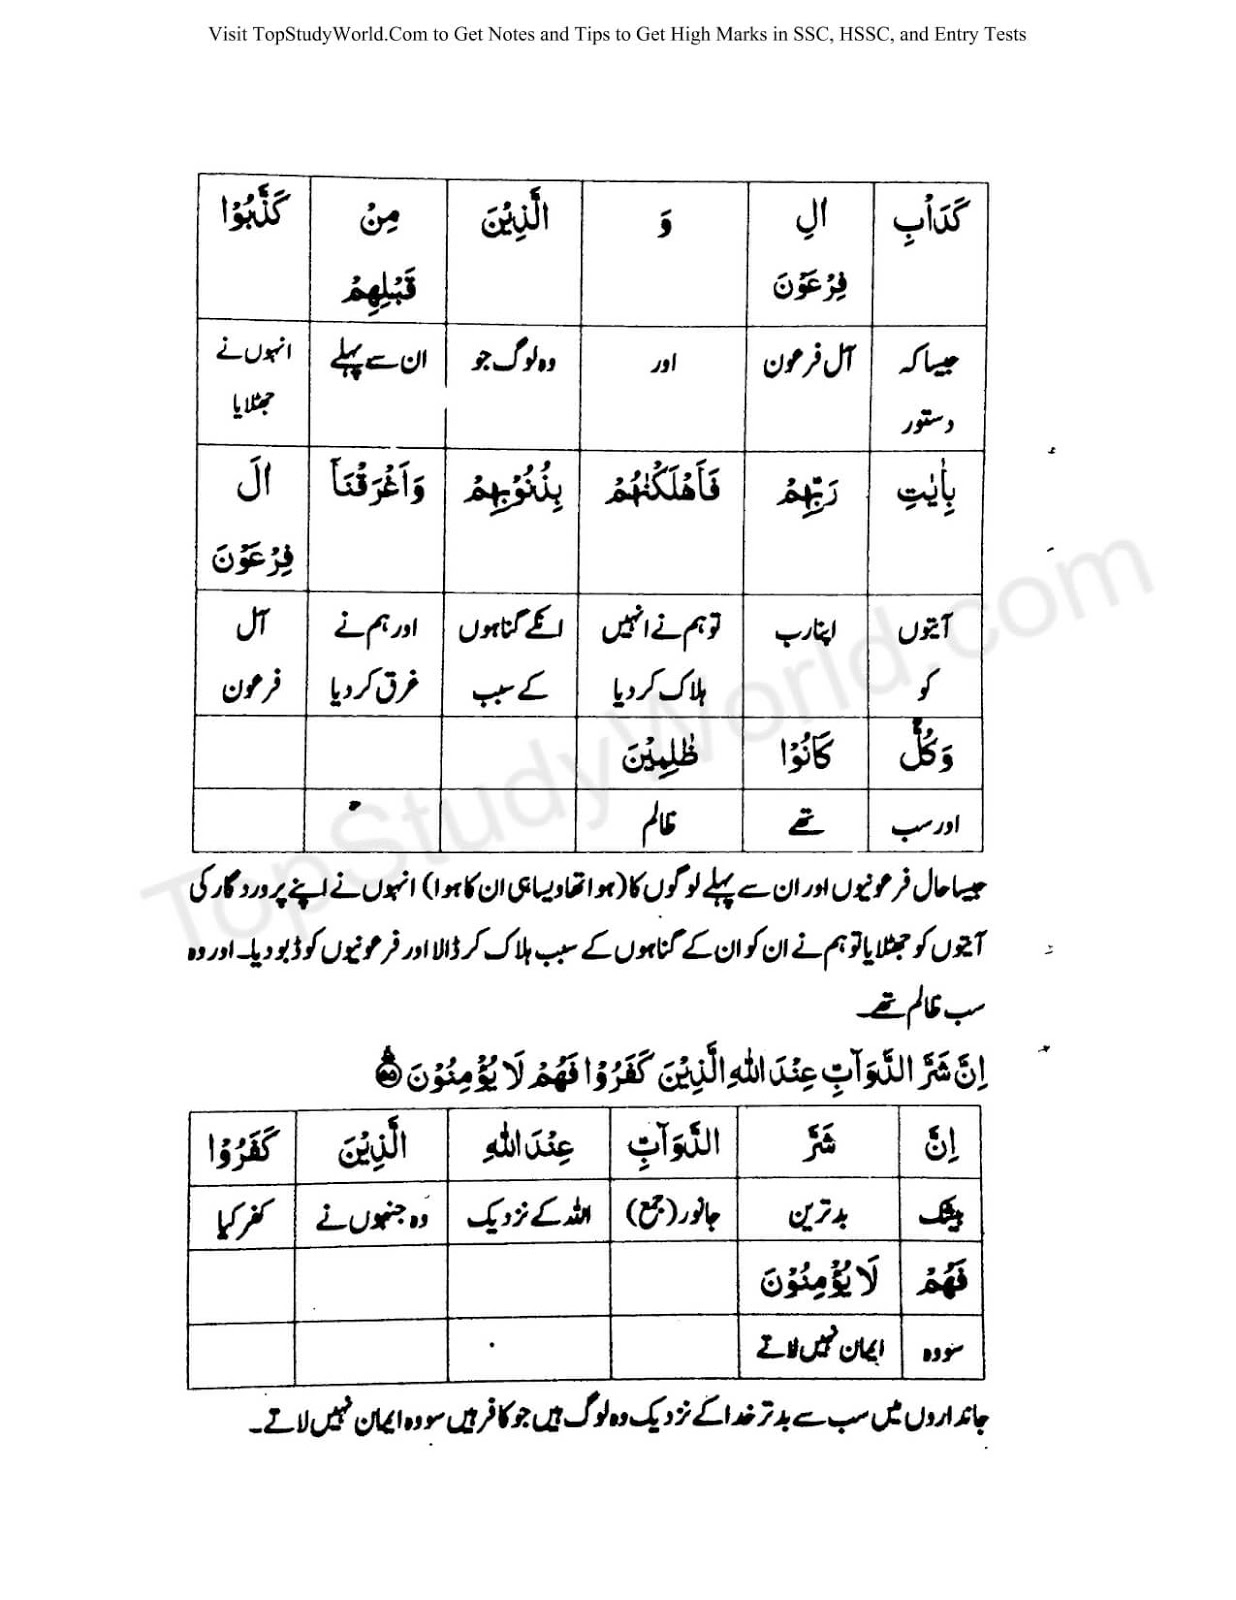 Visit TopStudyWorld.Com to Get Notes and Tips to Get High Marks in SSC, HSSC, and Entry Tests
كَدَاْبِ اٰلِ وَ الَّذِيْنَ مِنْ كَذَّبُوْا
فِرْعَوْنَ قَبْلِهِمْ
جیسا کہ آل فرعون اور وہ لوگ جو ان سے پہلے انہوں نے
دستور جھٹلایا
بِاٰيٰتِ رَبِّهِمْ فَاَهْلَكْنٰهُمْ بِذُنُوْبِهِمْ وَاَغْرَقْنَاۤ اٰلَ
فِرْعَوْنَ
آیتوں اپنا رب تو ہم نے انہیں انکے گناہوں اور ہم نے آل
کو ہلاک کر دیا کے سبب غرق کر دیا فرعون
وَكُلٌّ كَانُوْا ظٰلِمِيْنَ
اور سب تھے ظالم
جیسا حال فرعونیوں اور ان سے پہلے لوگوں کا (ہوا تھا ویسا ہی ان کا ہوا) انہوں نے اپنے پروردگار کی
آیتوں کو جھٹلایا تو ہم نے ان کو ان کے گناہوں کے سبب ہلاک کر ڈالا اور فرعونیوں کو ڈبو دیا۔ اور وہ
سب ظالم تھے۔
اِنَّ شَرَّ الدَّوَآبِّ عِنْدَ اللّٰهِ الَّذِيْنَ كَفَرُوْا فَهُمْ لَا يُؤْمِنُوْنَ ۝۵۵
اِنَّ شَرَّ الدَّوَآبِّ عِنْدَ اللّٰهِ الَّذِيْنَ كَفَرُوْا
بیشک بدترین جانور (جمع) اللہ کے نزدیک وہ جنہوں نے کفر کیا
فَهُمْ لَا يُؤْمِنُوْنَ
سو وہ ایمان نہیں لاتے
جانداروں میں سب سے بدتر خدا کے نزدیک وہ لوگ ہیں جو کافر ہیں سو وہ ایمان نہیں لاتے۔
TopStudyWorld.com